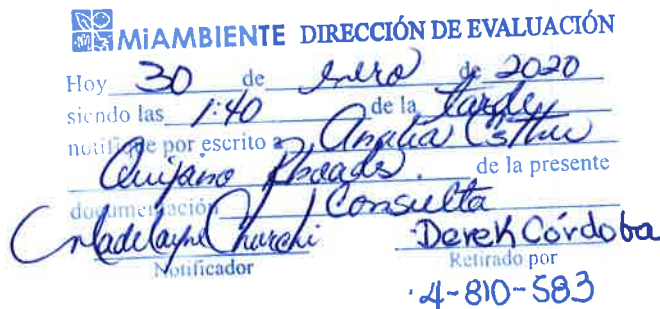 MiAMBIENTE DIRECCIÓN DE EVALUACIÓN
Hoy 30 de enero de 2020
siendo las 1:40 de la tarde
notifique por escrito a Analia Esther
Quijano Rhoads. de la presente
documentación Consulta
Churchi Derek Córdoba
Notificador Retirado por
4-810-583